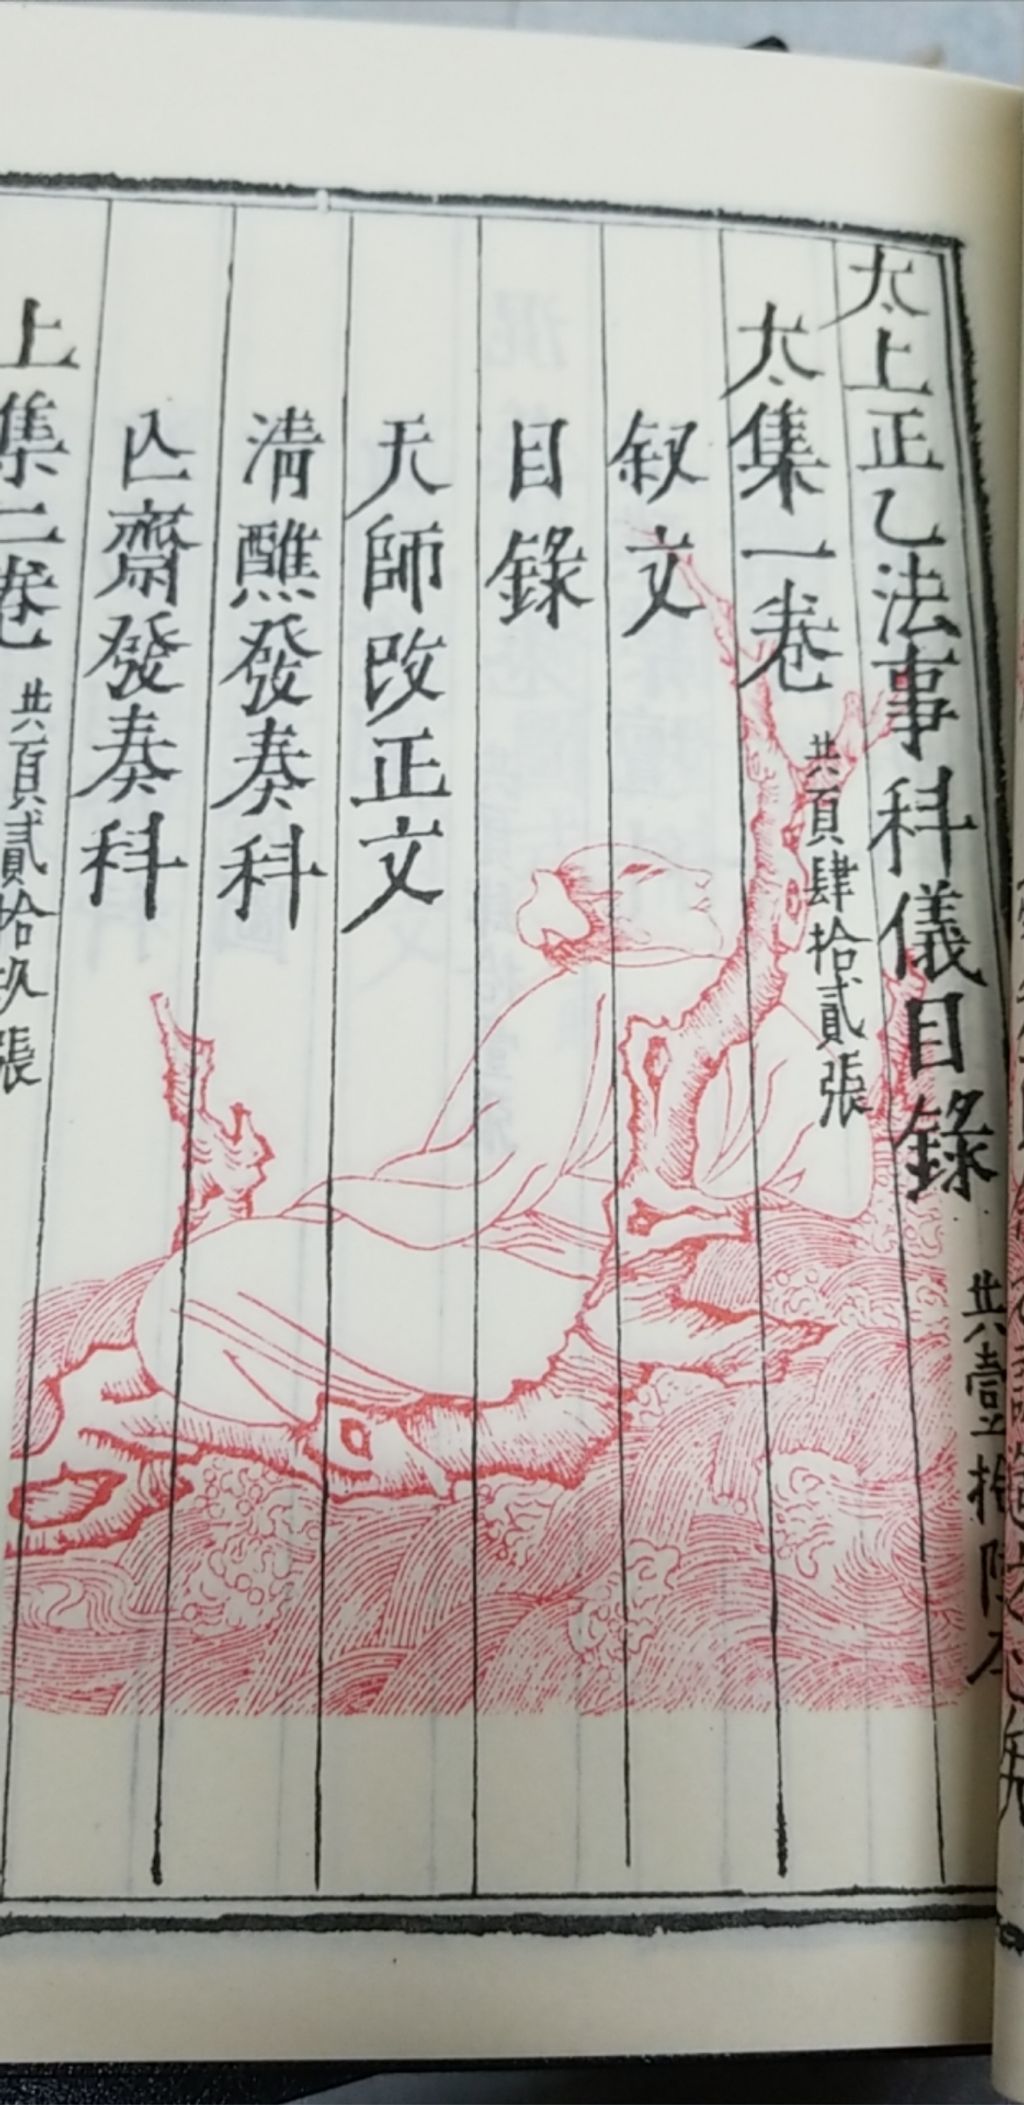 太上正乙法事科儀目錄 共壹拾陸本
太集一卷 共頁肆拾貳張
叙文
目錄
天師改正文
清醮發奏科
亾齋發奏科
上集二卷 共頁貳拾玖張